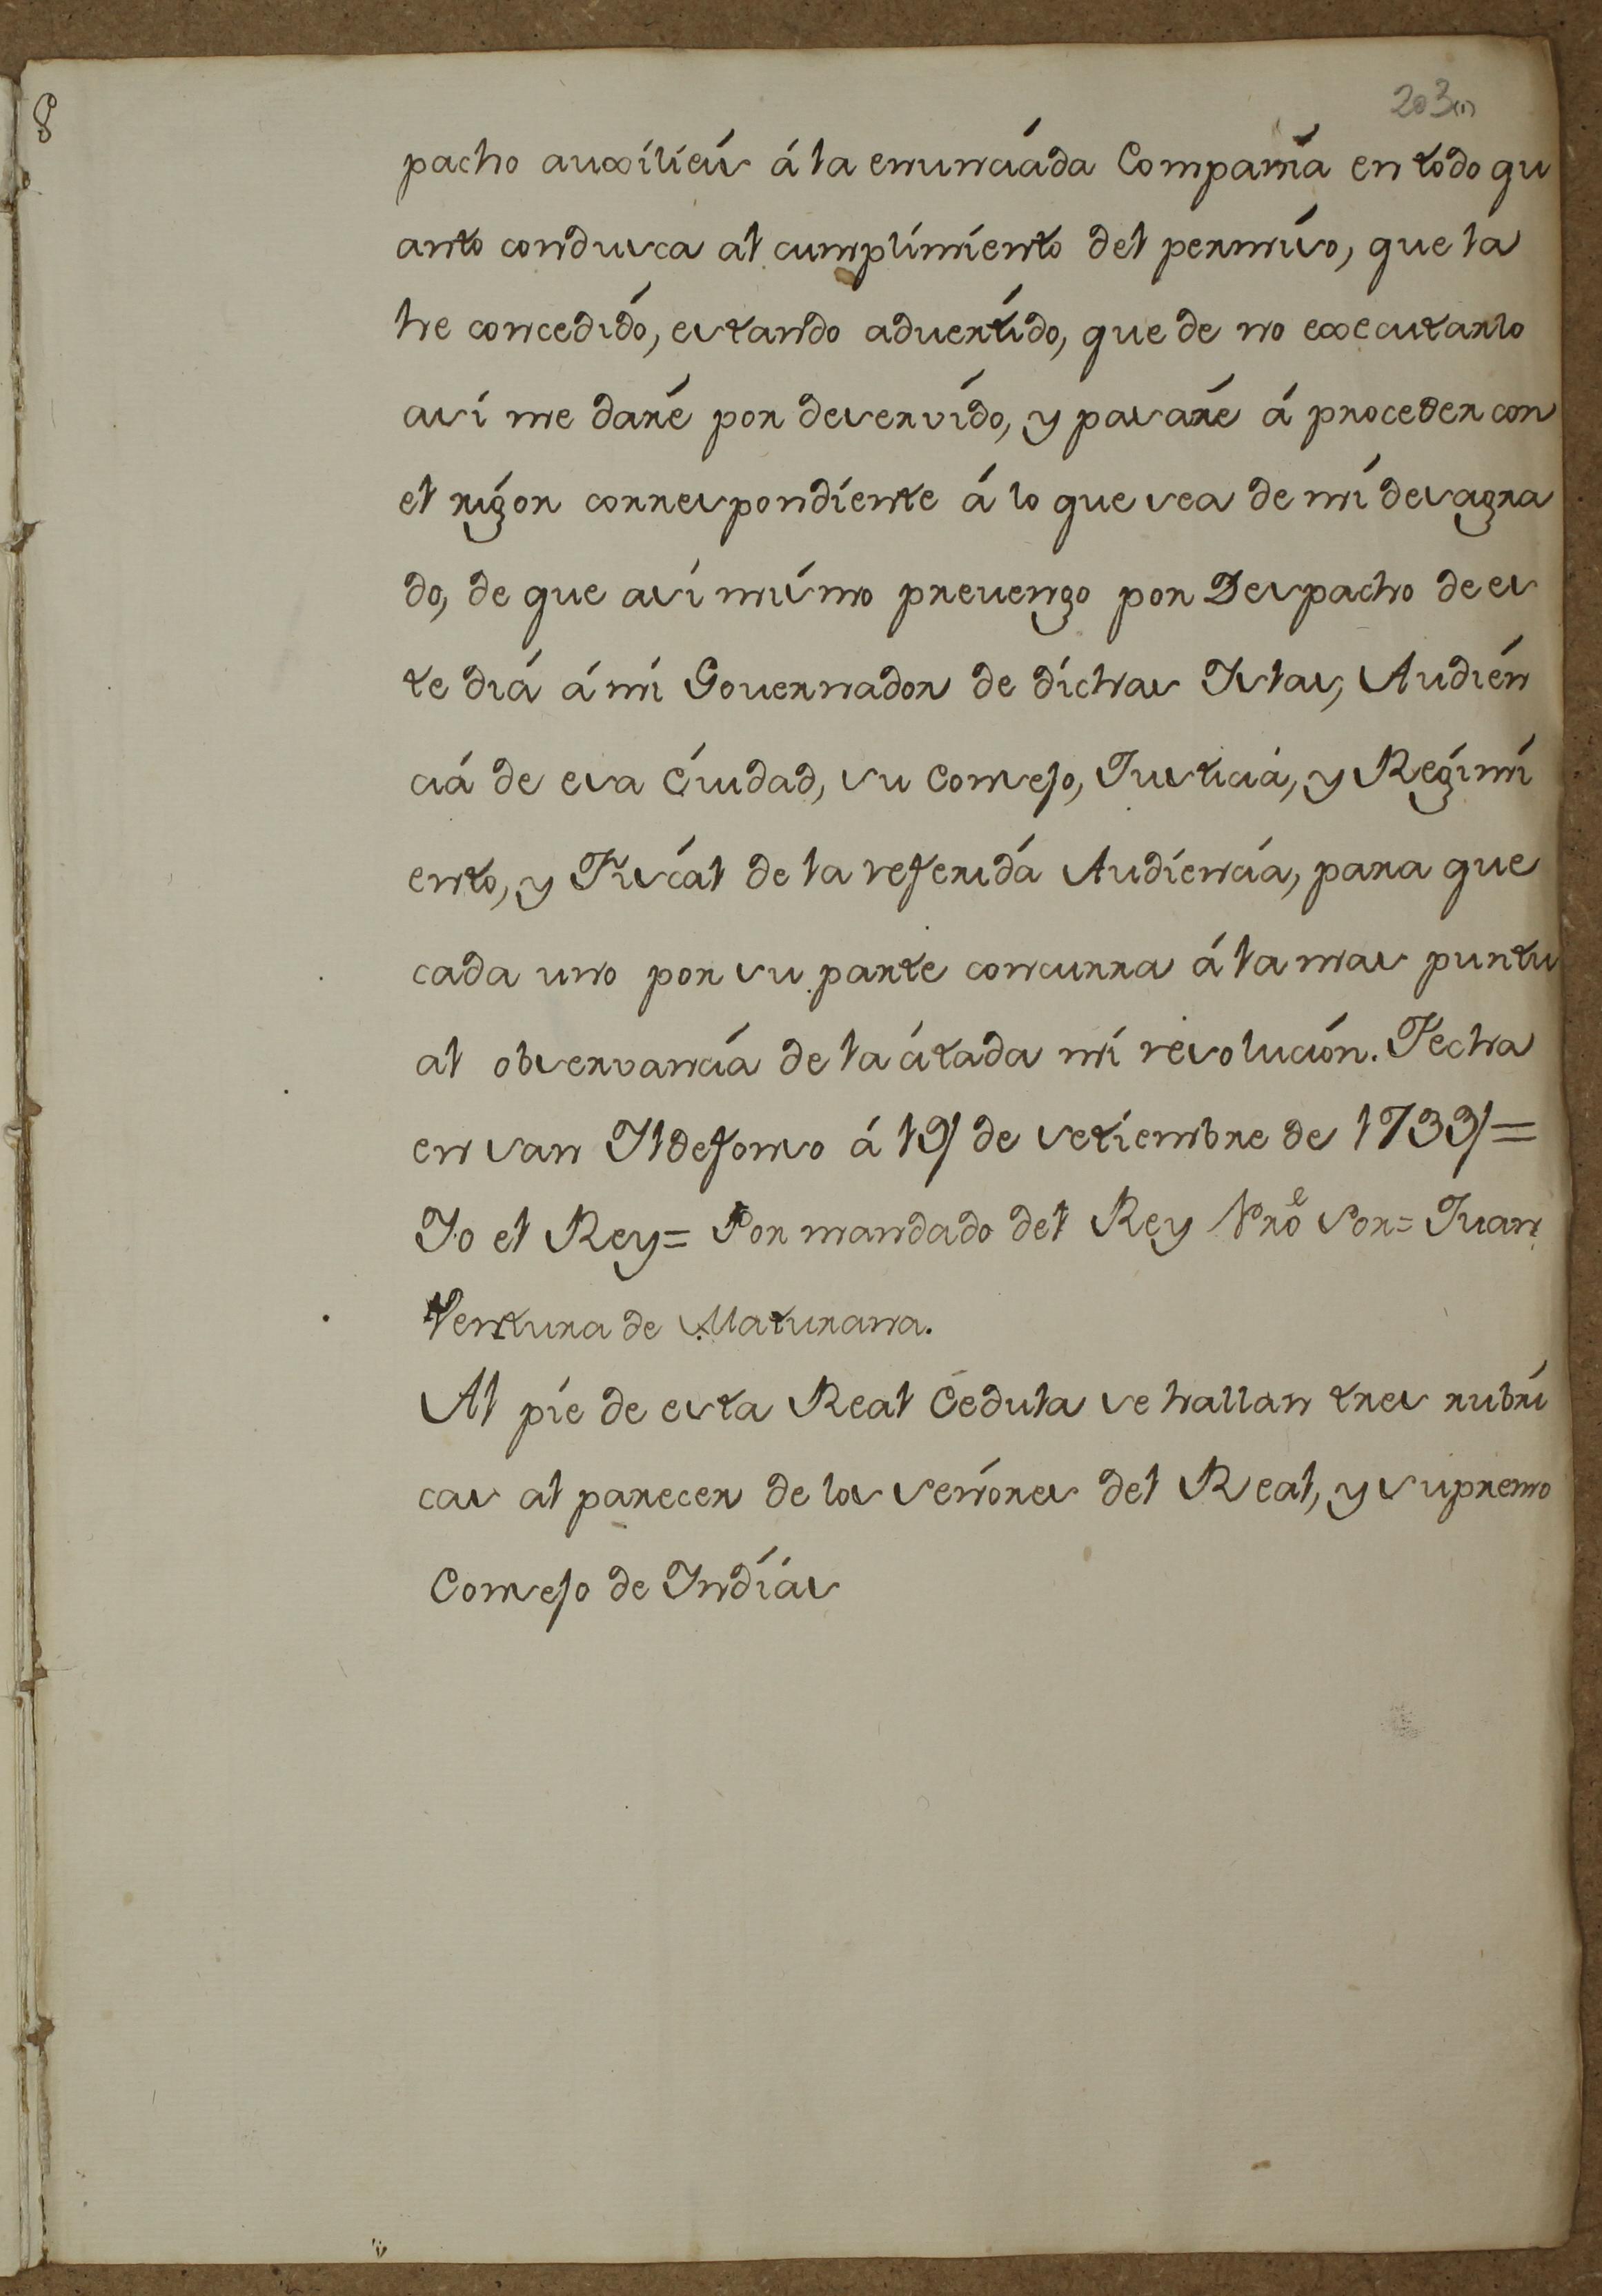 203(1)
8
pacho auxiliéis á la enunciáda Compañia en todo qu
anto condusca al cumplimiento del permiso, que la
he concedido, estando advertido, que de no executarlo
asi me daré por deservido, y pasaré á proceder con
el rigor correspondiente á lo que sea de mi desagra
do, de que asi mismo prevengo por Despacho de es
te diá á mi Governador de dichas Islas, Audién
ciá de esa Ciudad, su Consejo, Justiciá, y Regimi
ento, y Fiscál de la referida Audienciá, para que
cada uno por su parte concurra á la mas puntu
al observanciá de la citada mi resolución. Fecha
en san Ildefonso á 19 de setiembre de 1733 =
Yo el Rey = Por mandado del Rey Nrõ Sor = Juan
Ventura de Maturana.
Al pie de esta Real Cedula se hallan tres rubri
cas al parecer de los señores del Real, y supremo
Consejo de Indiás